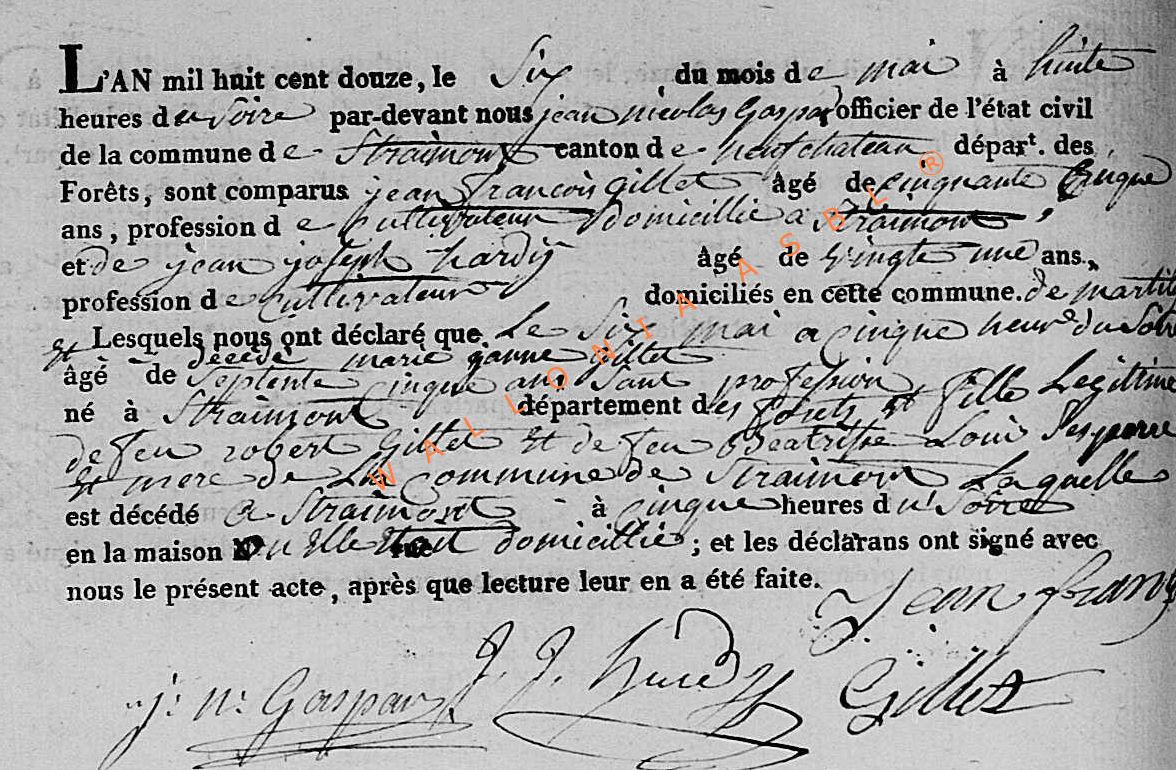 L'AN mil huit cent douze, le Six du mois de mai à huite
heures du Soire par-devant nous jean nicolas Gaspar officier de l'état civil
de la commune de Straimont canton de neufchateau, départ. des
Forêts, sont comparus jean françois Gillet âgé de cinquante Cinque
ans, profession de Cultivateur domicillié a Straimont,
et de jean joseph hardÿ âgé de vingte une ans.,
profession de Cultivateur domiciliés en cette commune. de martil
Lesquels nous ont déclaré que Le Six mai a cinque heure du Soir
est décédé marie janne Gillet
âgé de Septente cinque ans Sant profession
né à Straimont département des forets et fille Legitime
de feu robert Gillet et de feu Beatrixe Loui Ses peree
et mere de La Commune de Straimont Laquelle
est décédé a Straimont à cinque heures du Soire
en la maison ou elle etait domicillié; et les déclarans ont signé avec
nous le présent acte, après que lecture leur en a été faite.
Jean franc
j: n: Gaspar J. J. hardy Gillet
WALLONIA ASBL ®